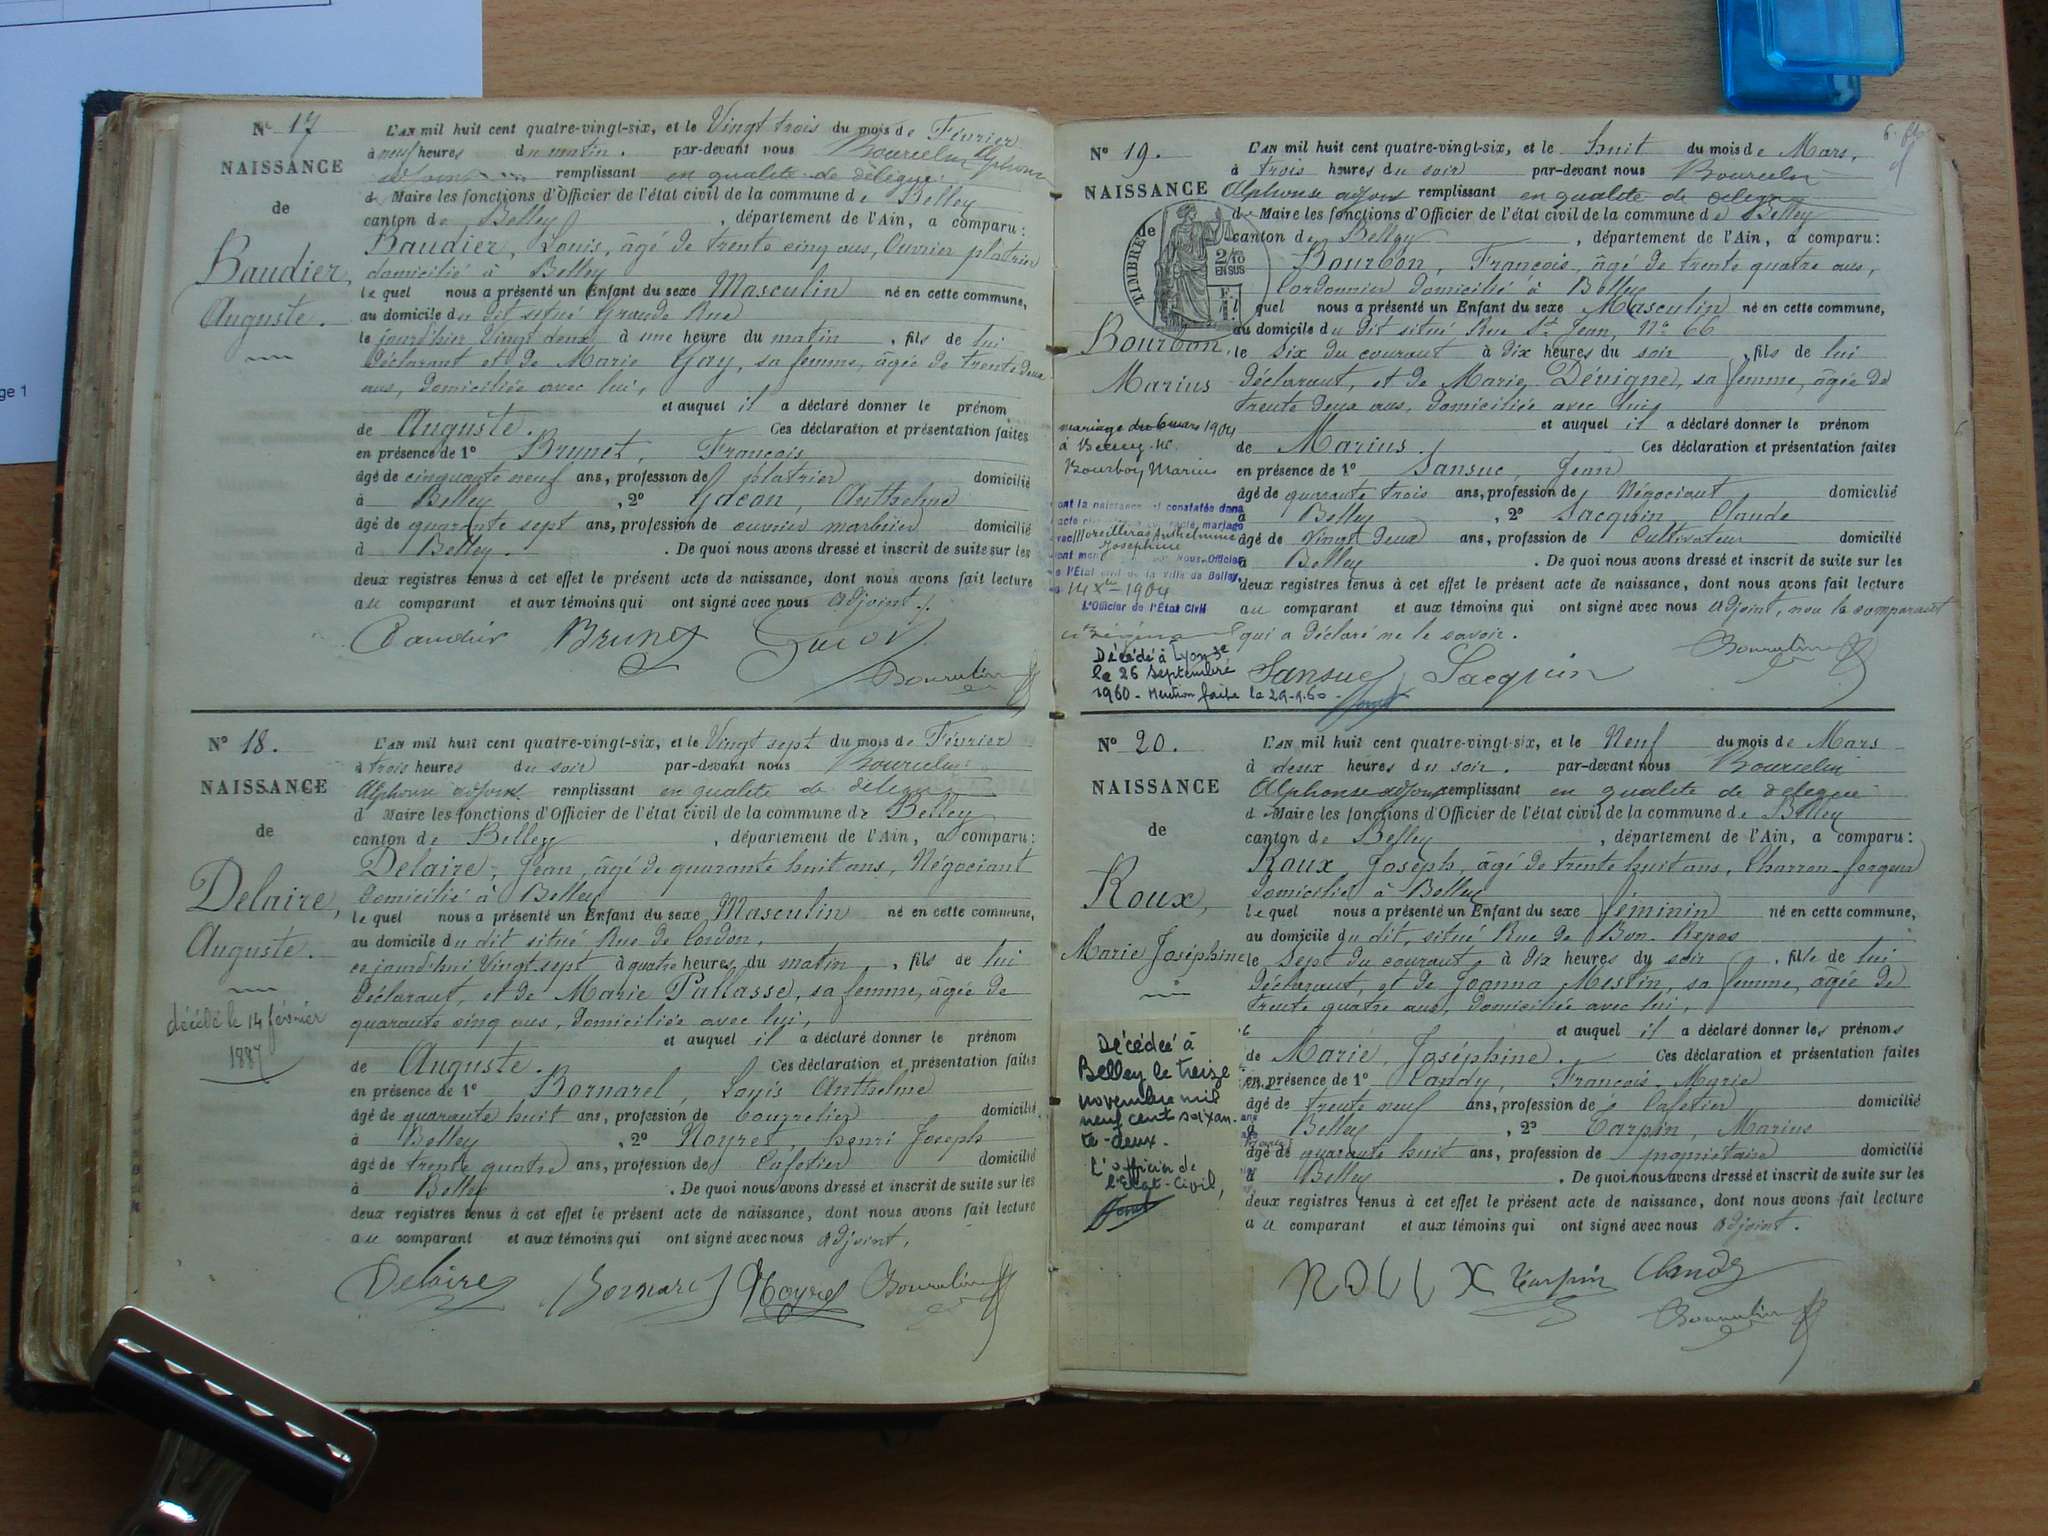 ge 1
N° 17
NAISSANCE
de
Baudier,
Auguste.
L'AN mil huit cent quatre-vingt-six, et le Vingt trois du mois de Février
à neuf heures du matin. par-devant nous Bourcelin Alphonse
remplissant en qualité de délégué
d Maire les fonctions d'Officier de l'état civil de la commune de Belley
canton de Belley, département de l'Ain, a comparu:
Baudier, Louis, âgé de trente cinq ans, Ouvrier platrier
domicilié à Belley
lequel nous a présenté un Enfant du sexe Masculin né en cette commune,
au domicile du dit situé Grande Rue
le jourd'hier Vingt deux à une heure du matin, fils de lui
déclarant et de Marie Gay, sa femme, âgée de trente deux
ans, domiciliée avec lui,
et auquel il a déclaré donner le prénom
de Auguste. Ces déclaration et présentation faites
en présence de 1° Brunet, François
âgé de cinquante neuf ans, profession de platrier domicilié
à Belley, 2° Gacon, Anthelme
âgé de quarante sept ans, profession de ouvrier marbrier domicilié
à Belley. De quoi nous avons dressé et inscrit de suite sur les
deux registres tenus à cet effet le présent acte de naissance, dont nous avons fait lecture
au comparant et aux témoins qui ont signé avec nous adjoint.
Baudier Brunet Gacon
Bourcelin
N° 18.
NAISSANCE
de
Delaire,
Auguste.
décédé le 14 février
1887
L'AN mil huit cent quatre-vingt-six, et le Vingt sept du mois de Février
à trois heures du soir par-devant nous Bourcelin
Alphonse adjoint remplissant en qualité de délégué
d Maire les fonctions d'Officier de l'état civil de la commune de Belley
canton de Belley, département de l'Ain, a comparu:
Delaire, Jean, âgé de quarante huit ans, Négociant
domicilié à Belley
lequel nous a présenté un Enfant du sexe Masculin né en cette commune,
au domicile du dit situé Rue de Cordon,
ce jourd'hui Vingt sept à quatre heures du matin, fils de lui
déclarant, et de Marie Pallasse, sa femme, âgée de
quarante cinq ans, domiciliée avec lui,
et auquel il a déclaré donner le prénom
de Auguste. Ces déclaration et présentation faites
en présence de 1° Bornarel, Louis Anthelme
âgé de quarante huit ans, profession de bourrelier domicilié
à Belley, 2° Noyret, henri Joseph
âgé de trente quatre ans, profession de Cafetier domicilié
à Belley. De quoi nous avons dressé et inscrit de suite sur les
deux registres tenus à cet effet le présent acte de naissance, dont nous avons fait lecture
au comparant et aux témoins qui ont signé avec nous adjoint,
Delaire Bornarel Noyret Bourcelin
N° 19.
NAISSANCE
de
TIMBRE
2/10
EN SUS
Bourbon,
Marius
mariage du 6 mars 1904
à Belley
Bourbon, Marius
dont la naissance est constatée dans
mariage
avec Moreilleras Anthelmine
Joséphine
Nous, Officier
de l'État civil de la ville de Belley,
14 Xbre 1904
L'Officier de l'État Civil
Décédé à Lyon 3e
le 26 Septembre
1960 - Mention faite le 29-9-60 -
L'AN mil huit cent quatre-vingt-six, et le huit du mois de Mars,
à trois heures du soir par-devant nous Bourcelin
Alphonse adjoint remplissant en qualité de délégué
de Maire les fonctions d'Officier de l'état civil de la commune de Belley
canton de Belley, département de l'Ain, a comparu:
Bourbon, François, âgé de trente quatre ans,
Cordonnier domicilié à Belley
lequel nous a présenté un Enfant du sexe Masculin né en cette commune,
au domicile du dit situé Rue St Jean, N° 66
le Six du courant à dix heures du soir, fils de lui
déclarant, et de Marie Dénigne, sa femme, âgée de
trente deux ans, domiciliée avec lui,
et auquel il a déclaré donner le prénom
de Marius. Ces déclaration et présentation faites
en présence de 1° Sansuc, Jean
âgé de quarante trois ans, profession de Négociant domicilié
à Belley, 2° Jacquin Claude
âgé de Vingt Deux ans, profession de Cultivateur domicilié
à Belley. De quoi nous avons dressé et inscrit de suite sur les
deux registres tenus à cet effet le présent acte de naissance, dont nous avons fait lecture
au comparant et aux témoins qui ont signé avec nous adjoint, non le comparant
qui a déclaré ne le savoir.
Sansuc Jacquin Bourcelin
N° 20.
NAISSANCE
de
Roux,
Marie Joséphine
Décédée à
Belley le treize
novembre mil
neuf cent soixan-
te-deux.
L'officier de
l'Etat-Civil,
L'AN mil huit cent quatre-vingt-six, et le Neuf du mois de Mars
à deux heures du soir. par-devant nous Bourcelin
Alphonse adjoint remplissant en qualité de délégué
d Maire les fonctions d'Officier de l'état civil de la commune de Belley
canton de Belley, département de l'Ain, a comparu:
Roux Joseph, âgé de trente huit ans, Charron-forgeur
domicilié à Belley
lequel nous a présenté un Enfant du sexe féminin né en cette commune,
au domicile du dit, situé Rue de Bon-Repos
le Sept du courant, à dix heures du soir, fille de lui
déclarant, et de Joanna Mestin, sa femme, âgée de
trente quatre ans, domiciliée avec lui,
et auquel il a déclaré donner les prénoms
de Marie, Joséphine. Ces déclaration et présentation faites
en présence de 1° Candy, François Marie
âgé de trente neuf ans, profession de Cafetier domicilié
à Belley, 2° Tarpin, Marius
âgé de quarante huit ans, profession de propriétaire domicilié
à Belley. De quoi nous avons dressé et inscrit de suite sur les
deux registres tenus à cet effet le présent acte de naissance, dont nous avons fait lecture
au comparant et aux témoins qui ont signé avec nous adjoint.
ROUX Tarpin Candy
Bourcelin